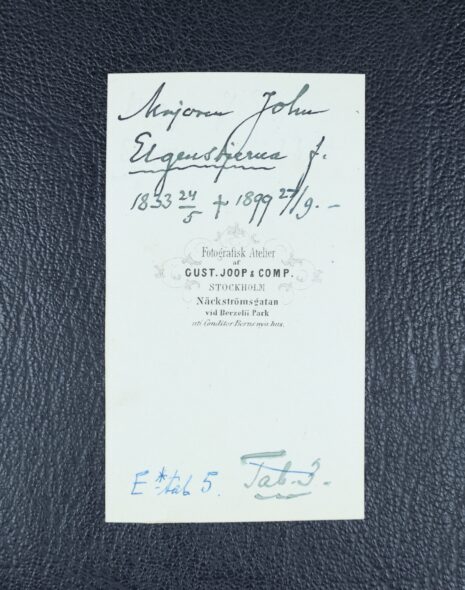 Majoren John
Elgenstierna f.
1833 24/5 † 1899 27/9. –
Fotografisk Atelier
af
GUST. JOOP & COMP.
STOCKHOLM
Näckströmsgatan
vid Berzelii Park
uti Conditor Berns nya hus.
E* tab 5. Tab. 3.